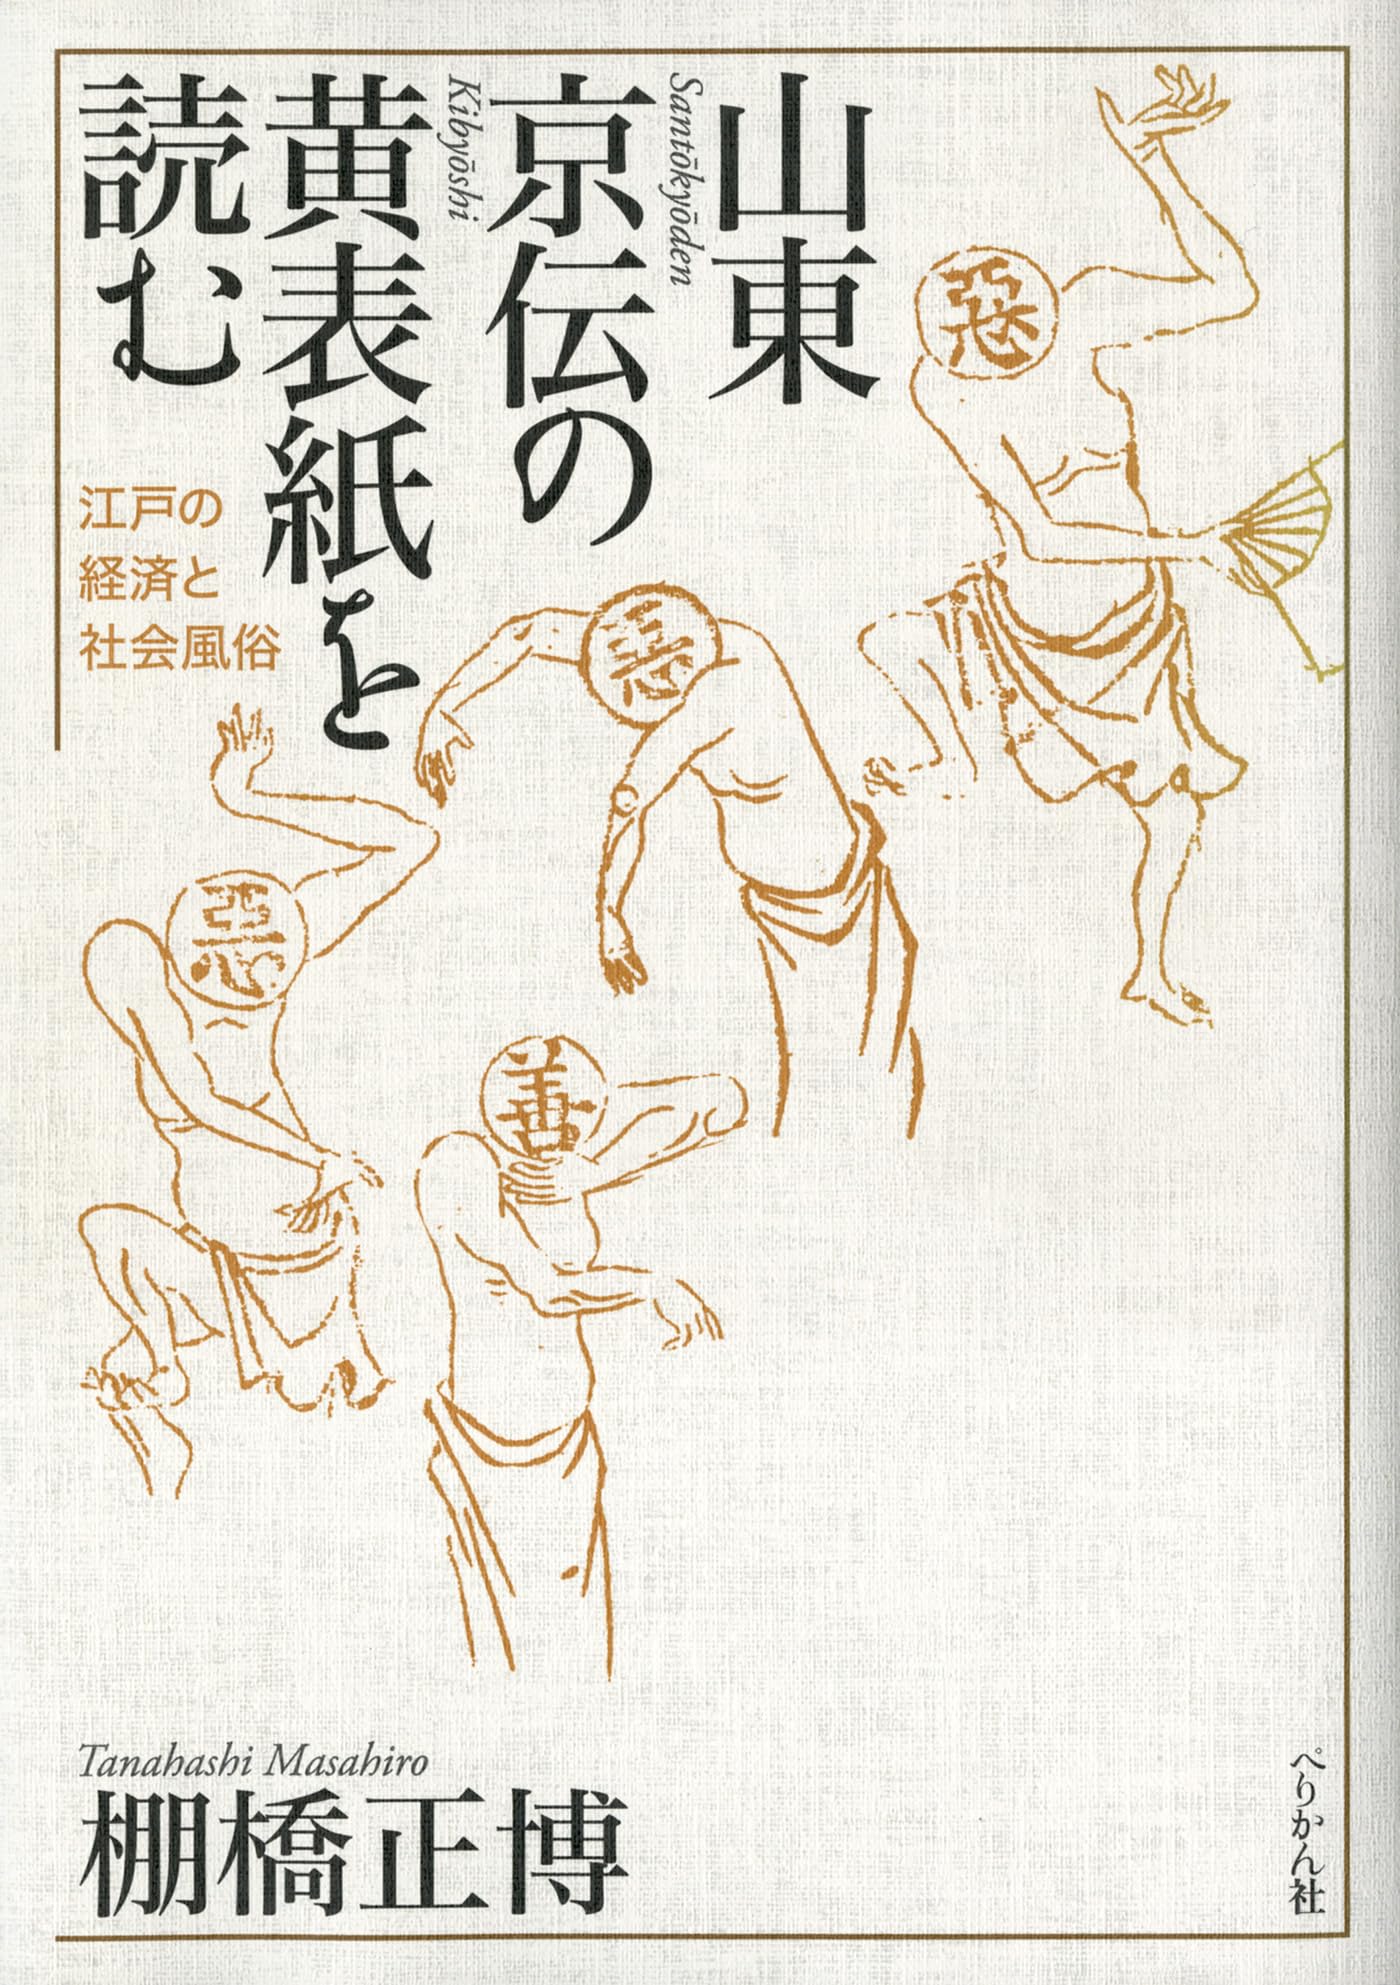 山東
京伝の
黄表紙を
読む
Santōkyōden
Kibyōshi
江戸の
経済と
社会風俗
惡
悪
悪
善
Tanahashi Masahiro
棚橋正博
ぺりかん社